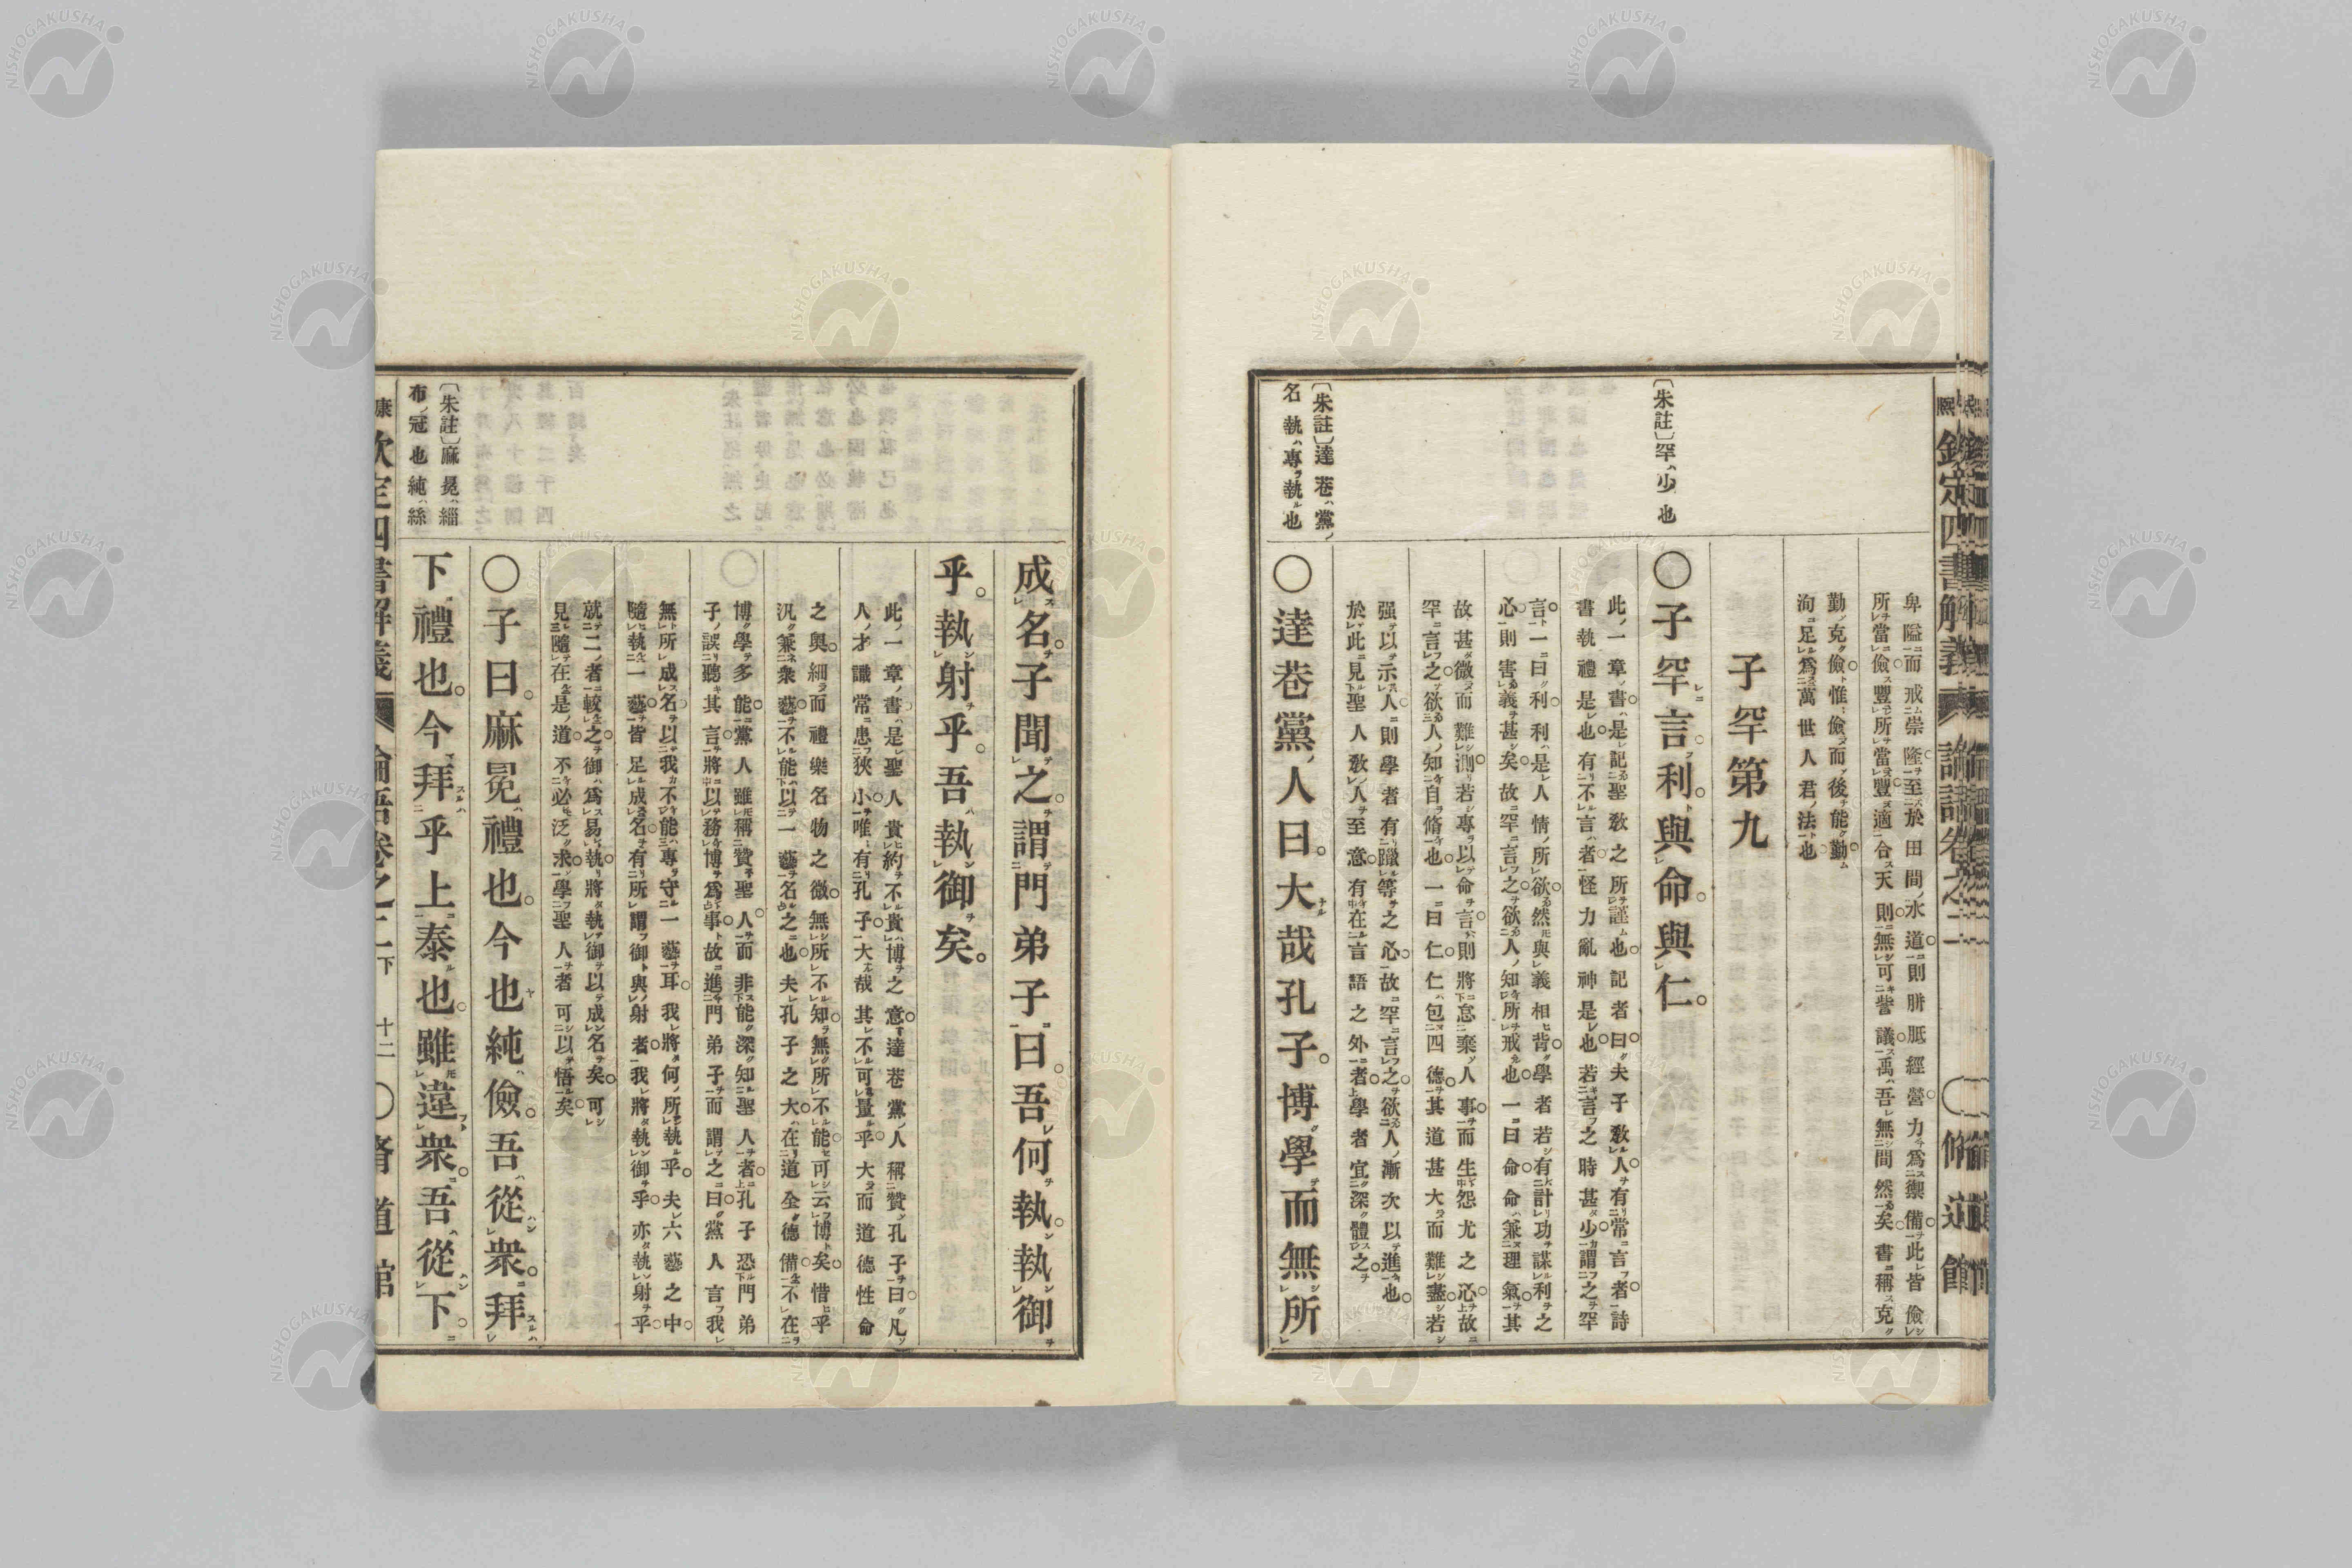 欽定四書解義 論語卷之二 〇脩道館
卑隘而戒崇隆至於田間水道則胼胝經營力爲禦備此皆儉
所當儉豐所當豐適合天則無可訾議禹吾無間然矣書稱克
勤克儉惟儉而後能勤
洵足爲萬世人君法也
子罕第九
〔朱註〕罕少也
〇子罕言利與命與仁。
此一章書是記聖敎之所謹也記者曰夫子敎人有常言者詩
書執禮是也有不言者怪力亂神是也若言之時甚少謂之罕
言一曰利利是人情所欲然與義相背學者若有計功謀利之
心則害義甚矣故罕言之欲人知所戒也一曰命命兼理氣其
故甚微而難測若專以命言則將怠棄人事而生怨尤之心故
罕言之欲人知自脩也一曰仁仁包四德其道甚大而難盡若
强以示人則學者有躐等之心故罕言之欲人漸次以進也
於此見聖人敎人至意有在言語之外者學者宜深體之
〔朱註〕達巷黨
名執專執也
〇達巷黨人曰。大哉孔子。博學而無所
成名。子聞之。謂門弟子曰。吾何執。執御
乎。執射乎。吾執御矣。
此一章書是聖人貴約不貴博之意達巷黨人稱贊孔子曰凡
人才識常患狹小唯有孔子大哉其不可量乎大而道德性命
之奧細而禮樂名物之微無所不知無所不能可云博矣惜乎
汎兼衆藝不能以一藝名之也夫孔子之大在道全德備不在
博學多能黨人雖稱贊聖人而非能深知聖人者孔子恐門弟
子誤聽其言將以務博爲事故進門弟子而謂之曰黨人言我
無所成名以我不能專守一藝耳我將何所執乎夫六藝之中
隨執一藝皆足成名有所謂御與射者我將執御乎亦執射乎
就二者較之御爲易執將執御以成名矣可
見隨在是道不必泛求學聖人者可以悟矣
〔朱註〕麻冕緇
布冠也純絲
〇子曰。麻冕禮也。今也純儉。吾從衆。拜
下禮也。今拜乎上泰也。雖違衆。吾從下。
欽定四書解義 論語卷之二下 十二 〇脩道館